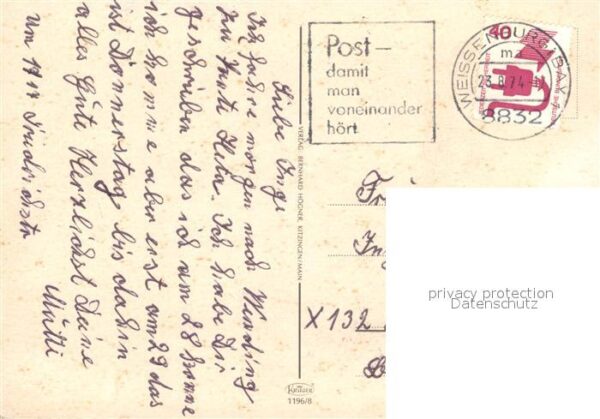 Liebe Inge
Ich fahre morgen nach Wemding
zur Tante Hela. Ich habe Dir
geschrieben das ich am 28 komme
ich komme aber erst am 29 das
ist Donnerstag bis dahin
alles Gute Herzlichst Deine
Mutti
um 17
Post –
damit
man
voneinander
hört.
WEISSENBURG, BAY 1
mz
23.8.74
8832
10
VERLAG BERNHARD HÖGNER, KITZINGEN/MAIN
X 132
Krüger
1196/8
privacy protection
Datenschutz